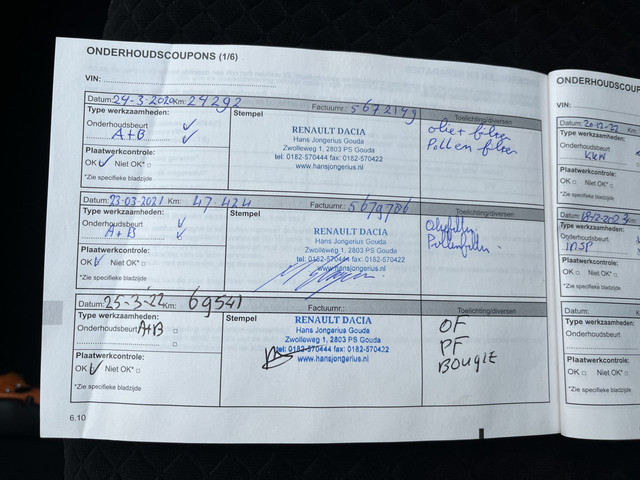 ONDERHOUDSCOUPONS (1/6)
VIN:
Datum: 24-3-2020 Km: 24292 Factuurnr.: 5672149 Toelichting/diversen
Type werkzaamheden: Stempel
Onderhoudsbeurt
A+B
RENAULT DACIA
Hans Jongerius Gouda
Zwolleweg 1, 2803 PS Gouda
tel: 0182-570444 fax: 0182-570422
www.hansjongerius.nl
olie+ filter
Pollen filter
Plaatwerkcontrole:
OK Niet OK*
*Zie specifieke bladzijde
Datum: 23-03-2021 Km: 47424 Factuurnr.: 5679786 Toelichting/diversen
Type werkzaamheden: Stempel
Onderhoudsbeurt
A+B
RENAULT DACIA
Hans Jongerius Gouda
Zwolleweg 1, 2803 PS Gouda
tel: 0182-570444 fax: 0182-570422
www.hansjongerius.nl
Pollenfilter
Plaatwerkcontrole:
OK Niet OK*
*Zie specifieke bladzijde
Datum: 25-3-22 Km: 69541 Factuurnr.: Toelichting/diversen
Type werkzaamheden: Stempel
Onderhoudsbeurt A+B
RENAULT DACIA
Hans Jongerius Gouda
Zwolleweg 1, 2803 PS Gouda
tel: 0182-570444 fax: 0182-570422
www.hansjongerius.nl
OF
PF
BOUGIE
Plaatwerkcontrole:
OK Niet OK*
*Zie specifieke bladzijde
6.10
ONDERHOUDSCOUP
VIN:
Datum: 20-12-22
Type werkzaamheden:
Onderhoudsbeurt
Plaatwerkcontrole:
OK Niet OK*
*Zie specifieke bladzijde
Datum:
Type werkzaamheden:
Onderhoudsbeurt
INSP
Plaatwerkcontrole:
OK Niet OK*
*Zie specifieke bladzijde
Datum:
Type werkzaamheden:
Onderhoudsbeurt
Plaatwerkcontrole:
OK Niet OK*
*Zie specifieke bladzijde